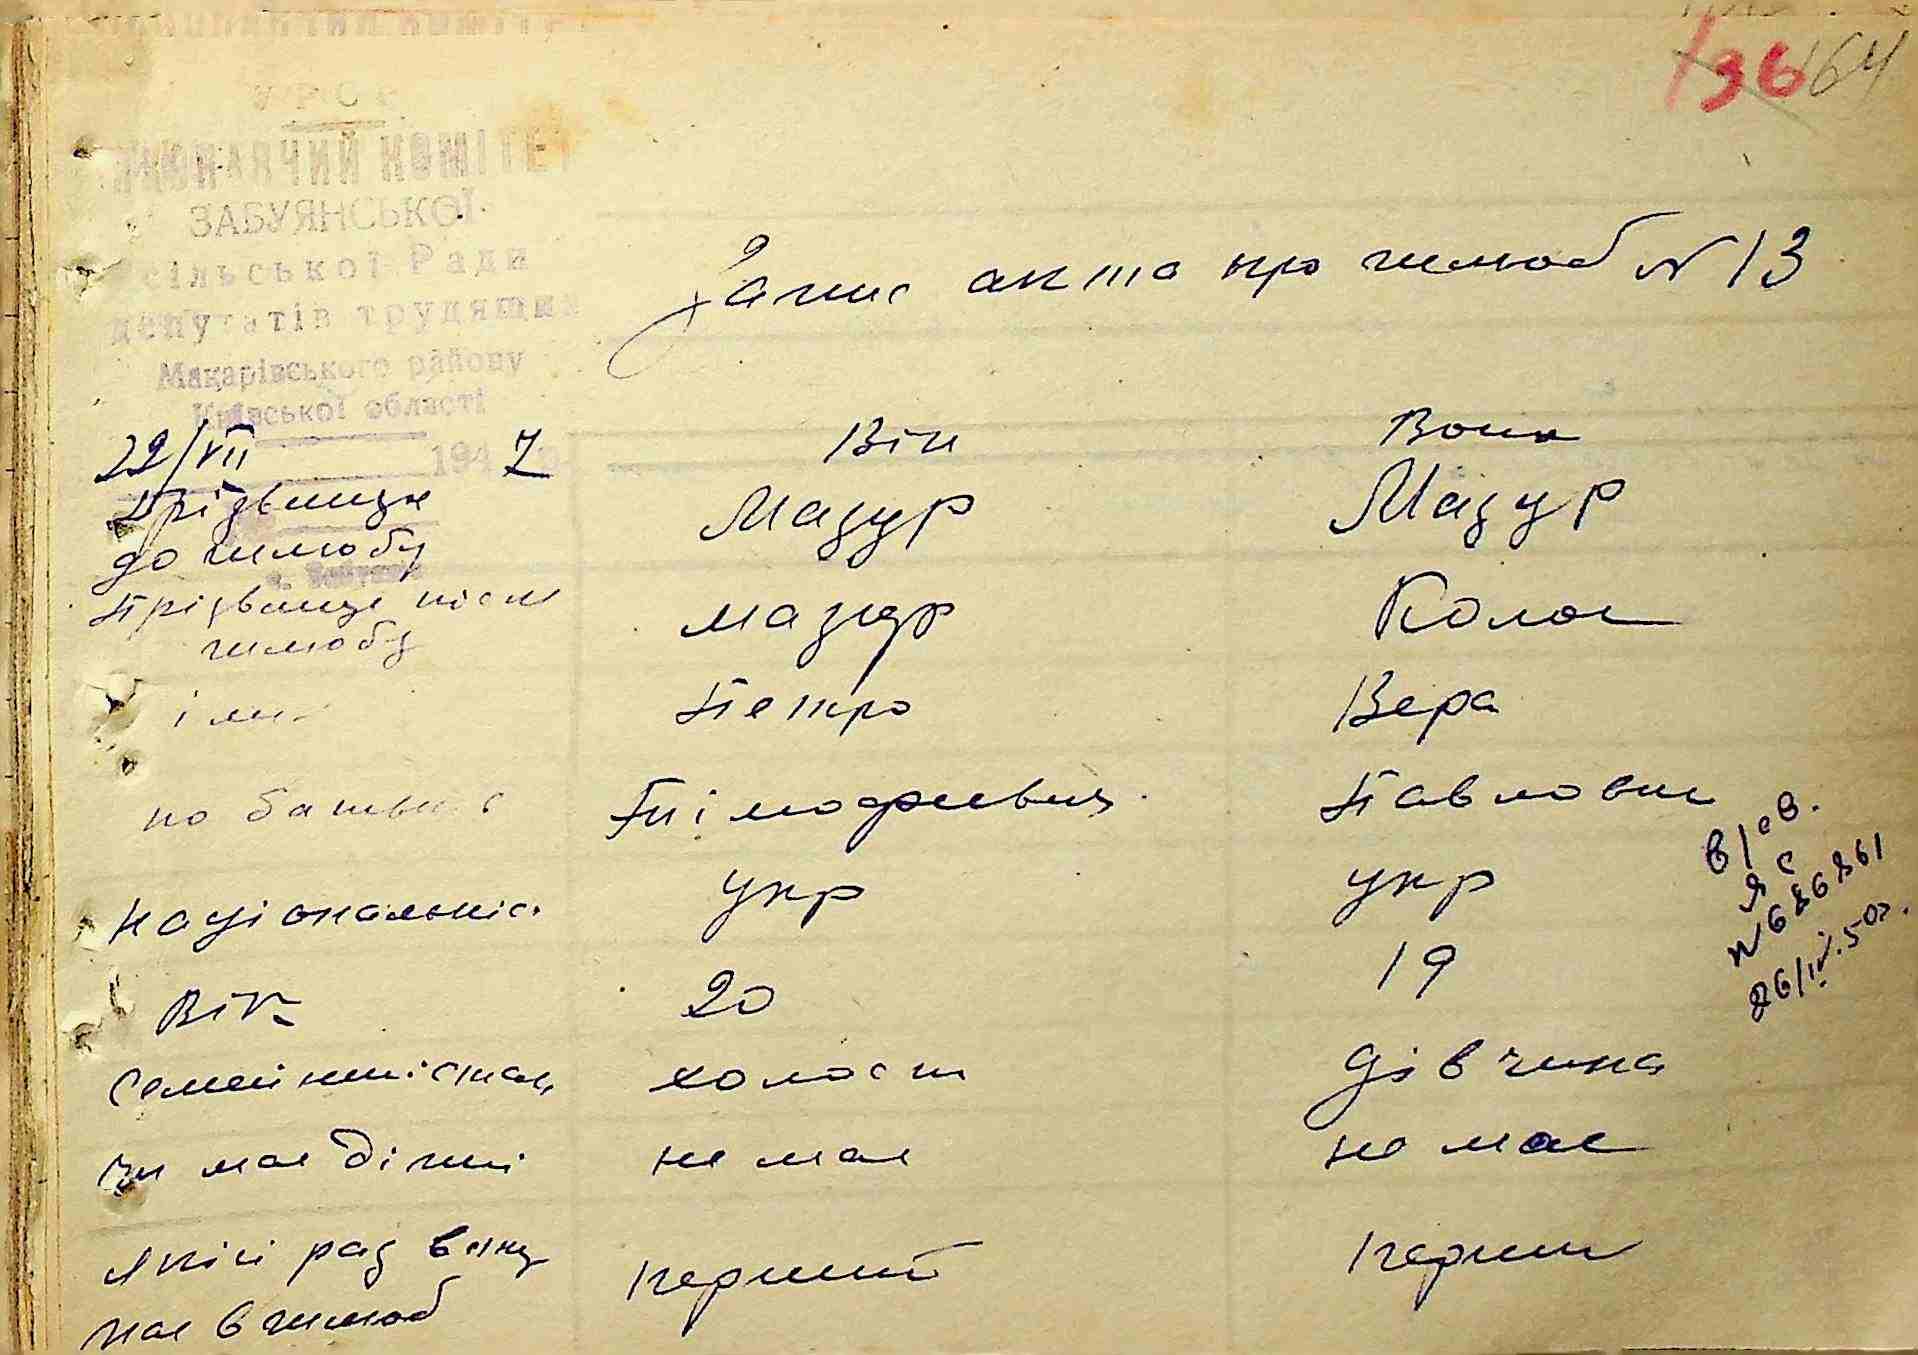 136 164
УРСР
ВИКОНАВЧИЙ КОМІТЕТ
ЗАБУЯНСЬКОЇ
сільської Ради
депутатів трудящих
Макарівського району
Київської області
Запис акта про шлюб N 13
22/VII 1947 Він Вона
Прізвище до шлюбу Мазур Мазур
Прізвище після шлюбу Мазур Колос
імя Петро Вера
по батьков Тімофиевич Павловн
Національніс. укр укр
Вік 20 19
Семейний стан холост дівчина
чи має діти не має не має
який раз вступає в шлюб перший перши
ЯС
N 686861
26/IV.50р.